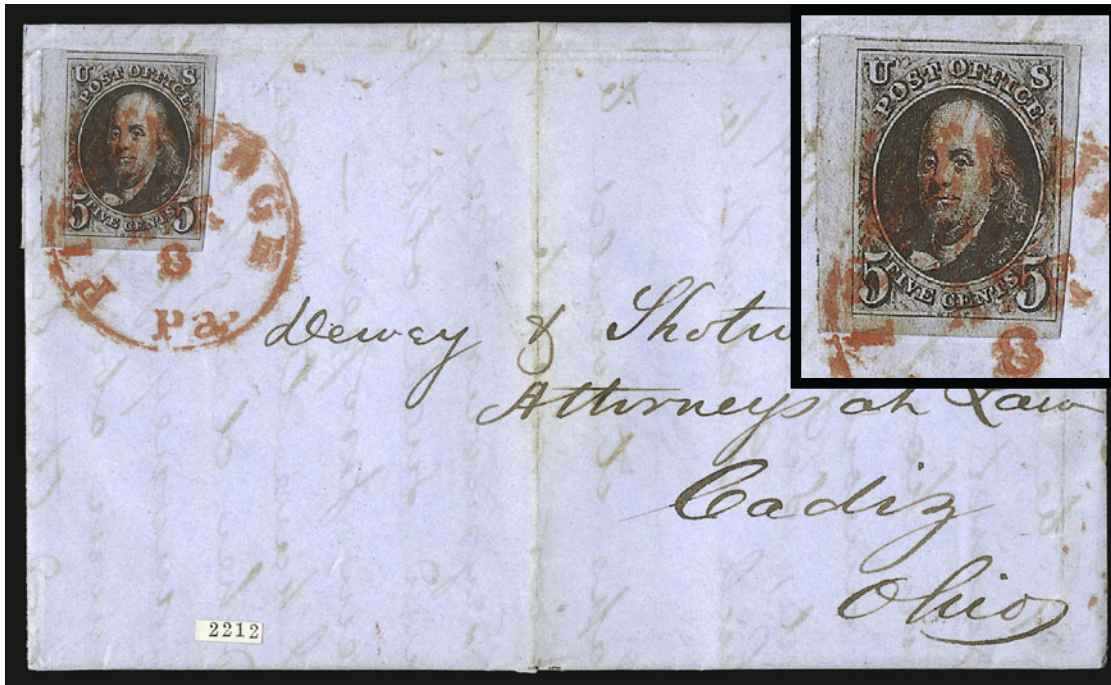 U S
POST OFFICE
5 FIVE CENTS 5
8
Pa
Dewey & Shotw
Attorneys at Law
Cadiz
Ohio
2212
U S
POST OFFICE
5 FIVE CENTS 5
8